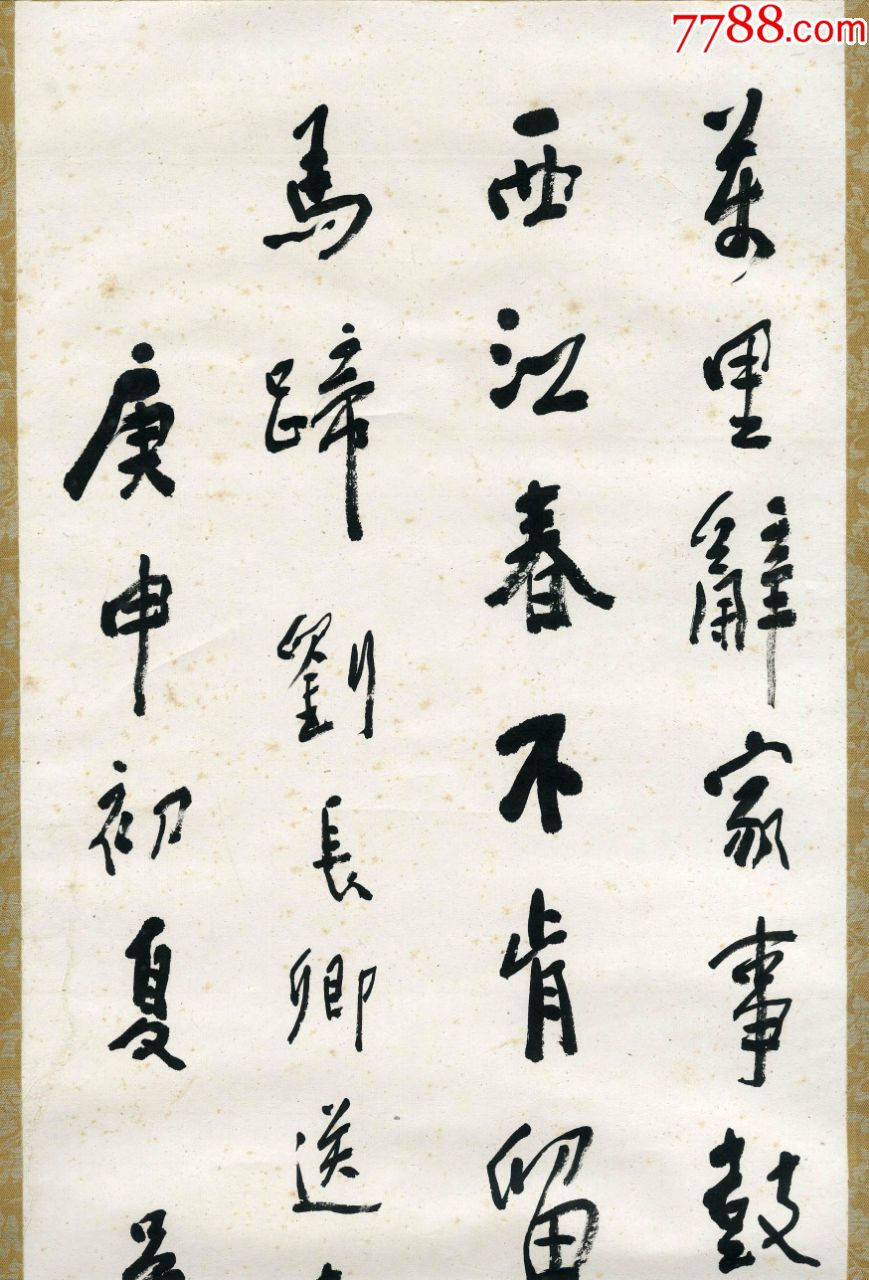 7788.com
萬里辭家事鼓
西江春不肯留
馬蹄 劉長卿送
庚申初夏